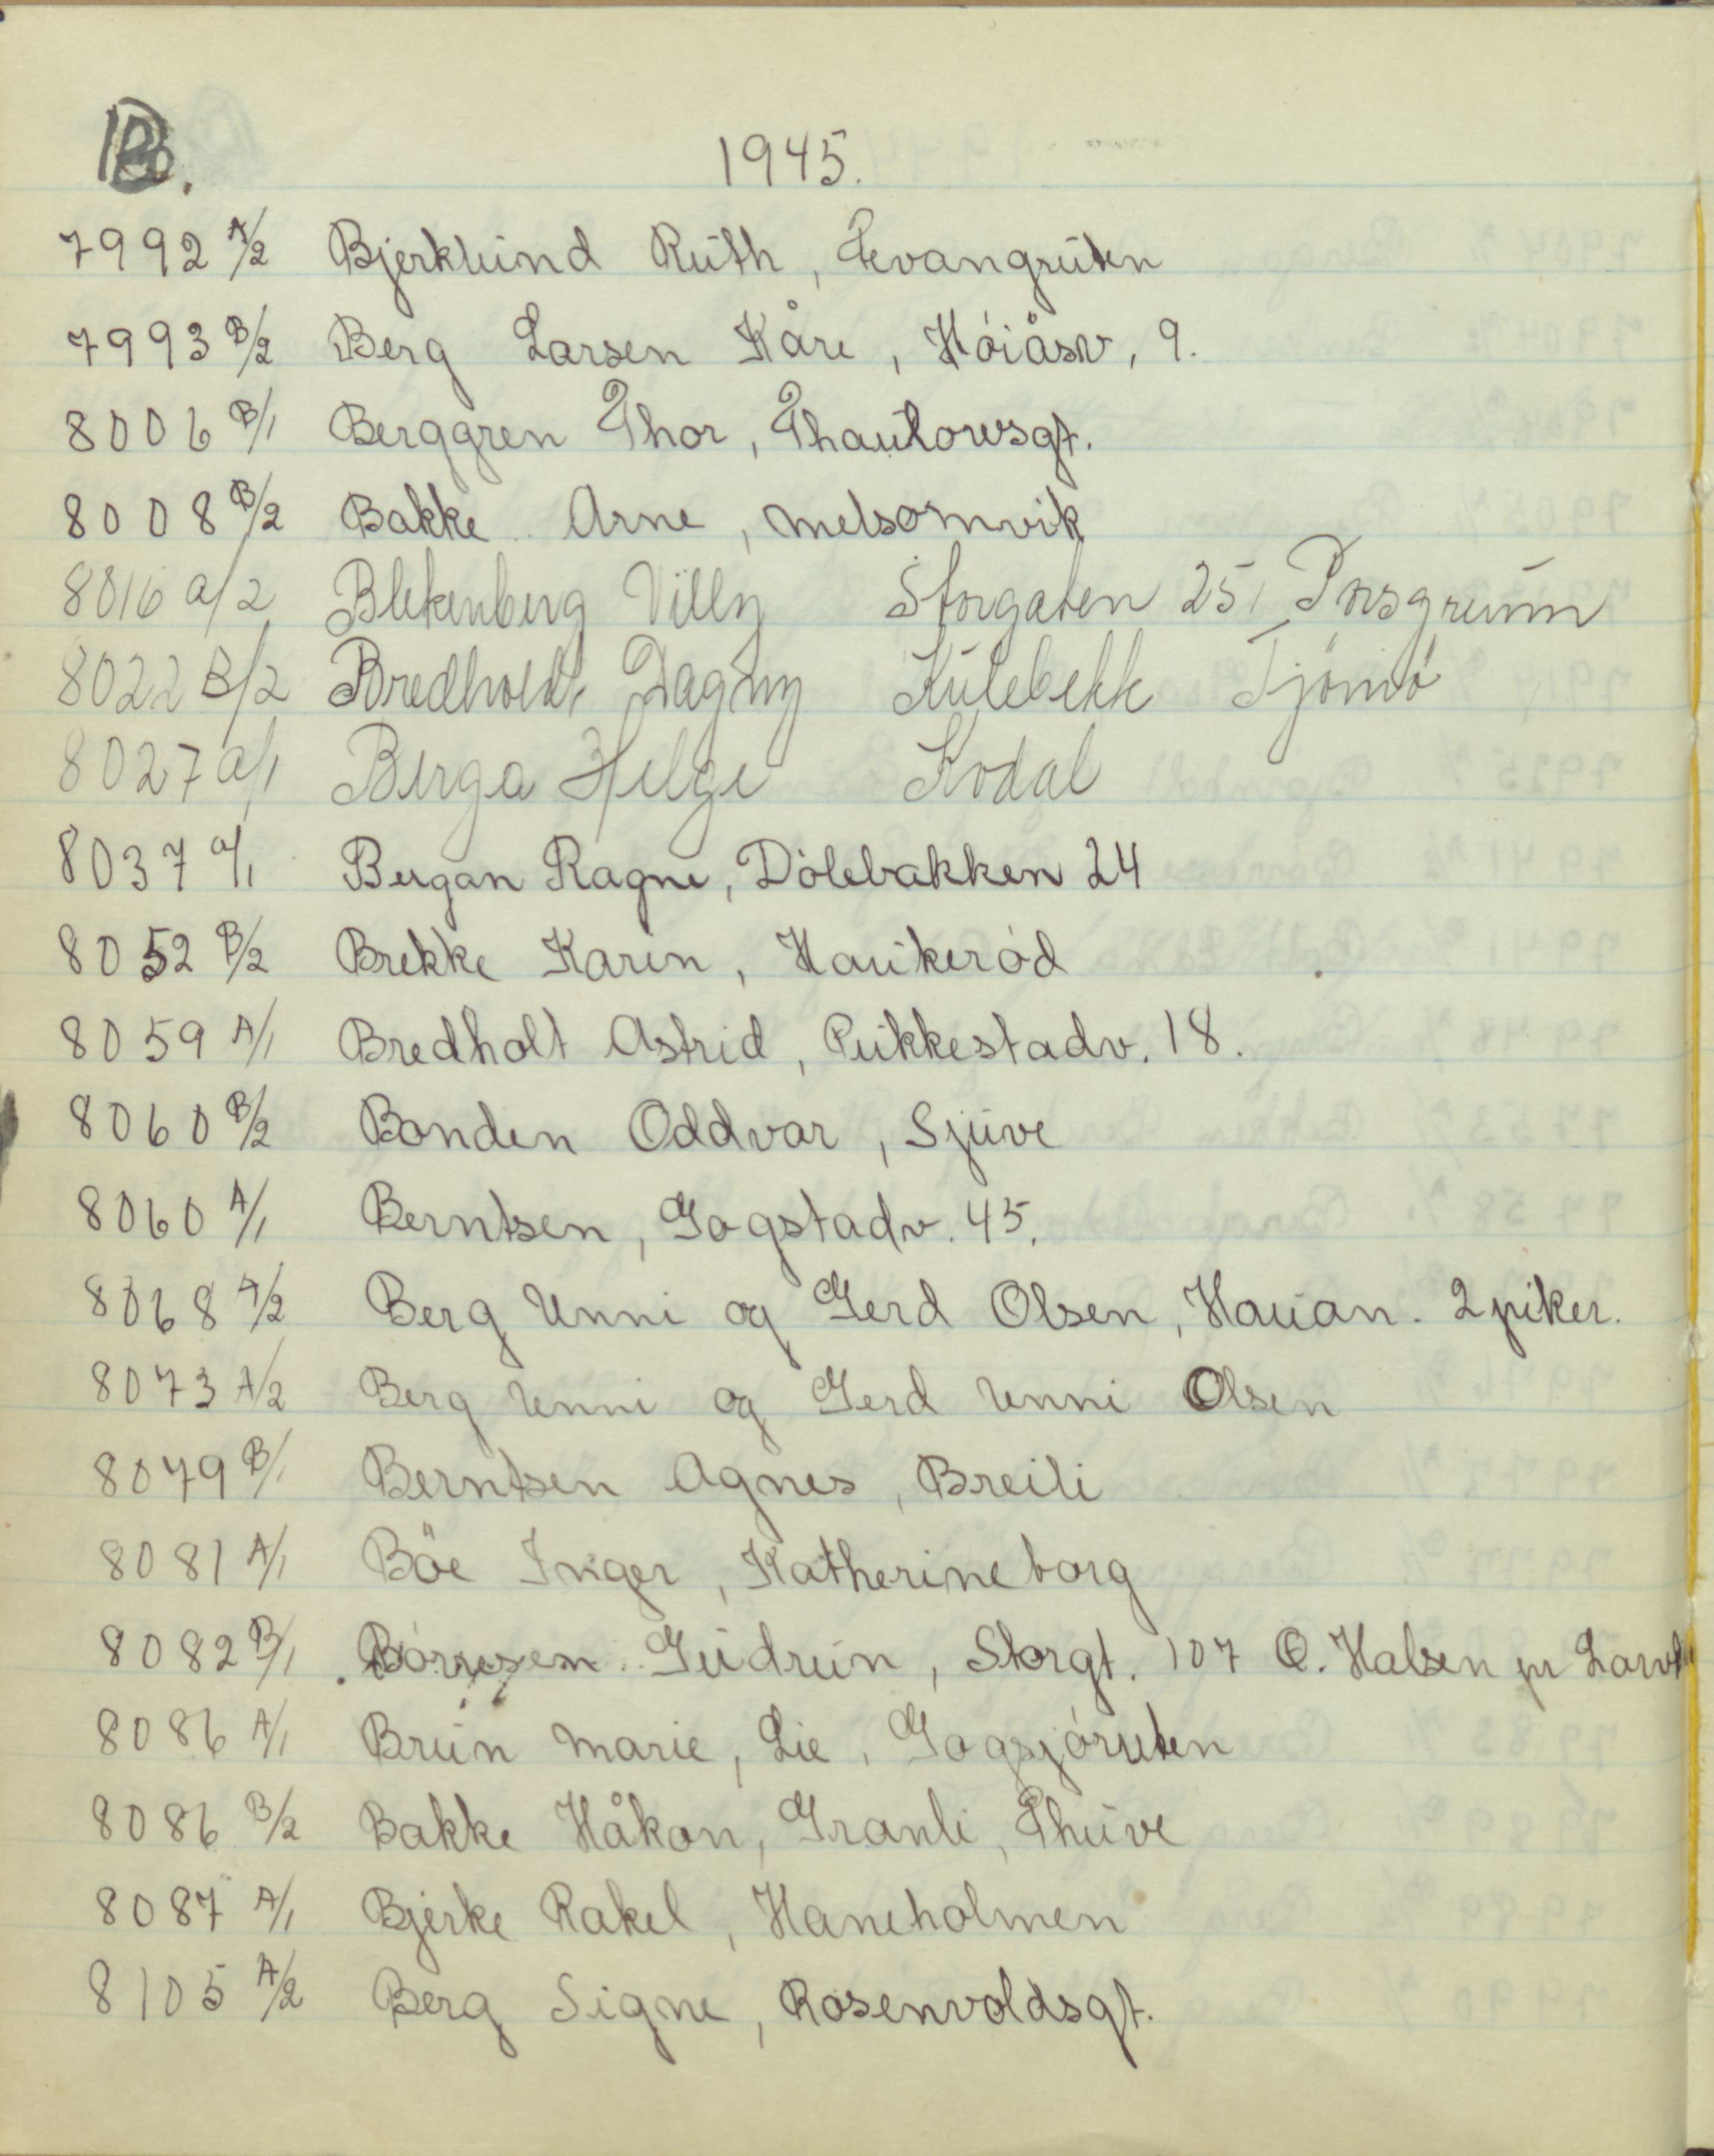 B.
1945.
7992 A/2 Bjerklund Ruth, Fevangruten
7993 B/2 Berg Larsen Kåre, Höiåsv, 9.
8006 B/1 Berggren Thor, Thaulowsgt.
8008 B/2 Bakke Arne, Melsomvik
8016 a/2 Blekenberg Villy Storgaten 25, Porsgrunn
8022 B/2 Bredholdt Dagny Kulebekk Tjömö
8027 a/1 Berga Helge Kodal
8037 a/1 Bergan Ragne, Dölebakken 24
8052 B/2 Brekke Karin, Haukeröd
8059 A/1 Bredholt Astrid, Pukkestadv. 18.
8060 B/2 Bonden Oddvar, Sjuve
8060 A/1 Berntsen, Gogstadv. 45.
8068 A/2 Berg Unni og Gerd Olsen, Hauan. 2 piker.
8073 A/2 Berg Unni og Gerd Unni Olsen
8079 B/1 Berntsen Agnes, Breili
8081 A/1 Böe Inger, Katherineborg
8082 B/1 Börresen Gudrun, Storgt. 107 Ö. Halsen pr Larvik
8086 A/1 Brun Marie, Lie, Gogsjöruten
8086 B/2 Bakke Håkon, Granli, Thuve
8087 A/1 Bjerke Rakel, Haneholmen
8105 A/2 Berg Signe, Rosenvoldsgt.